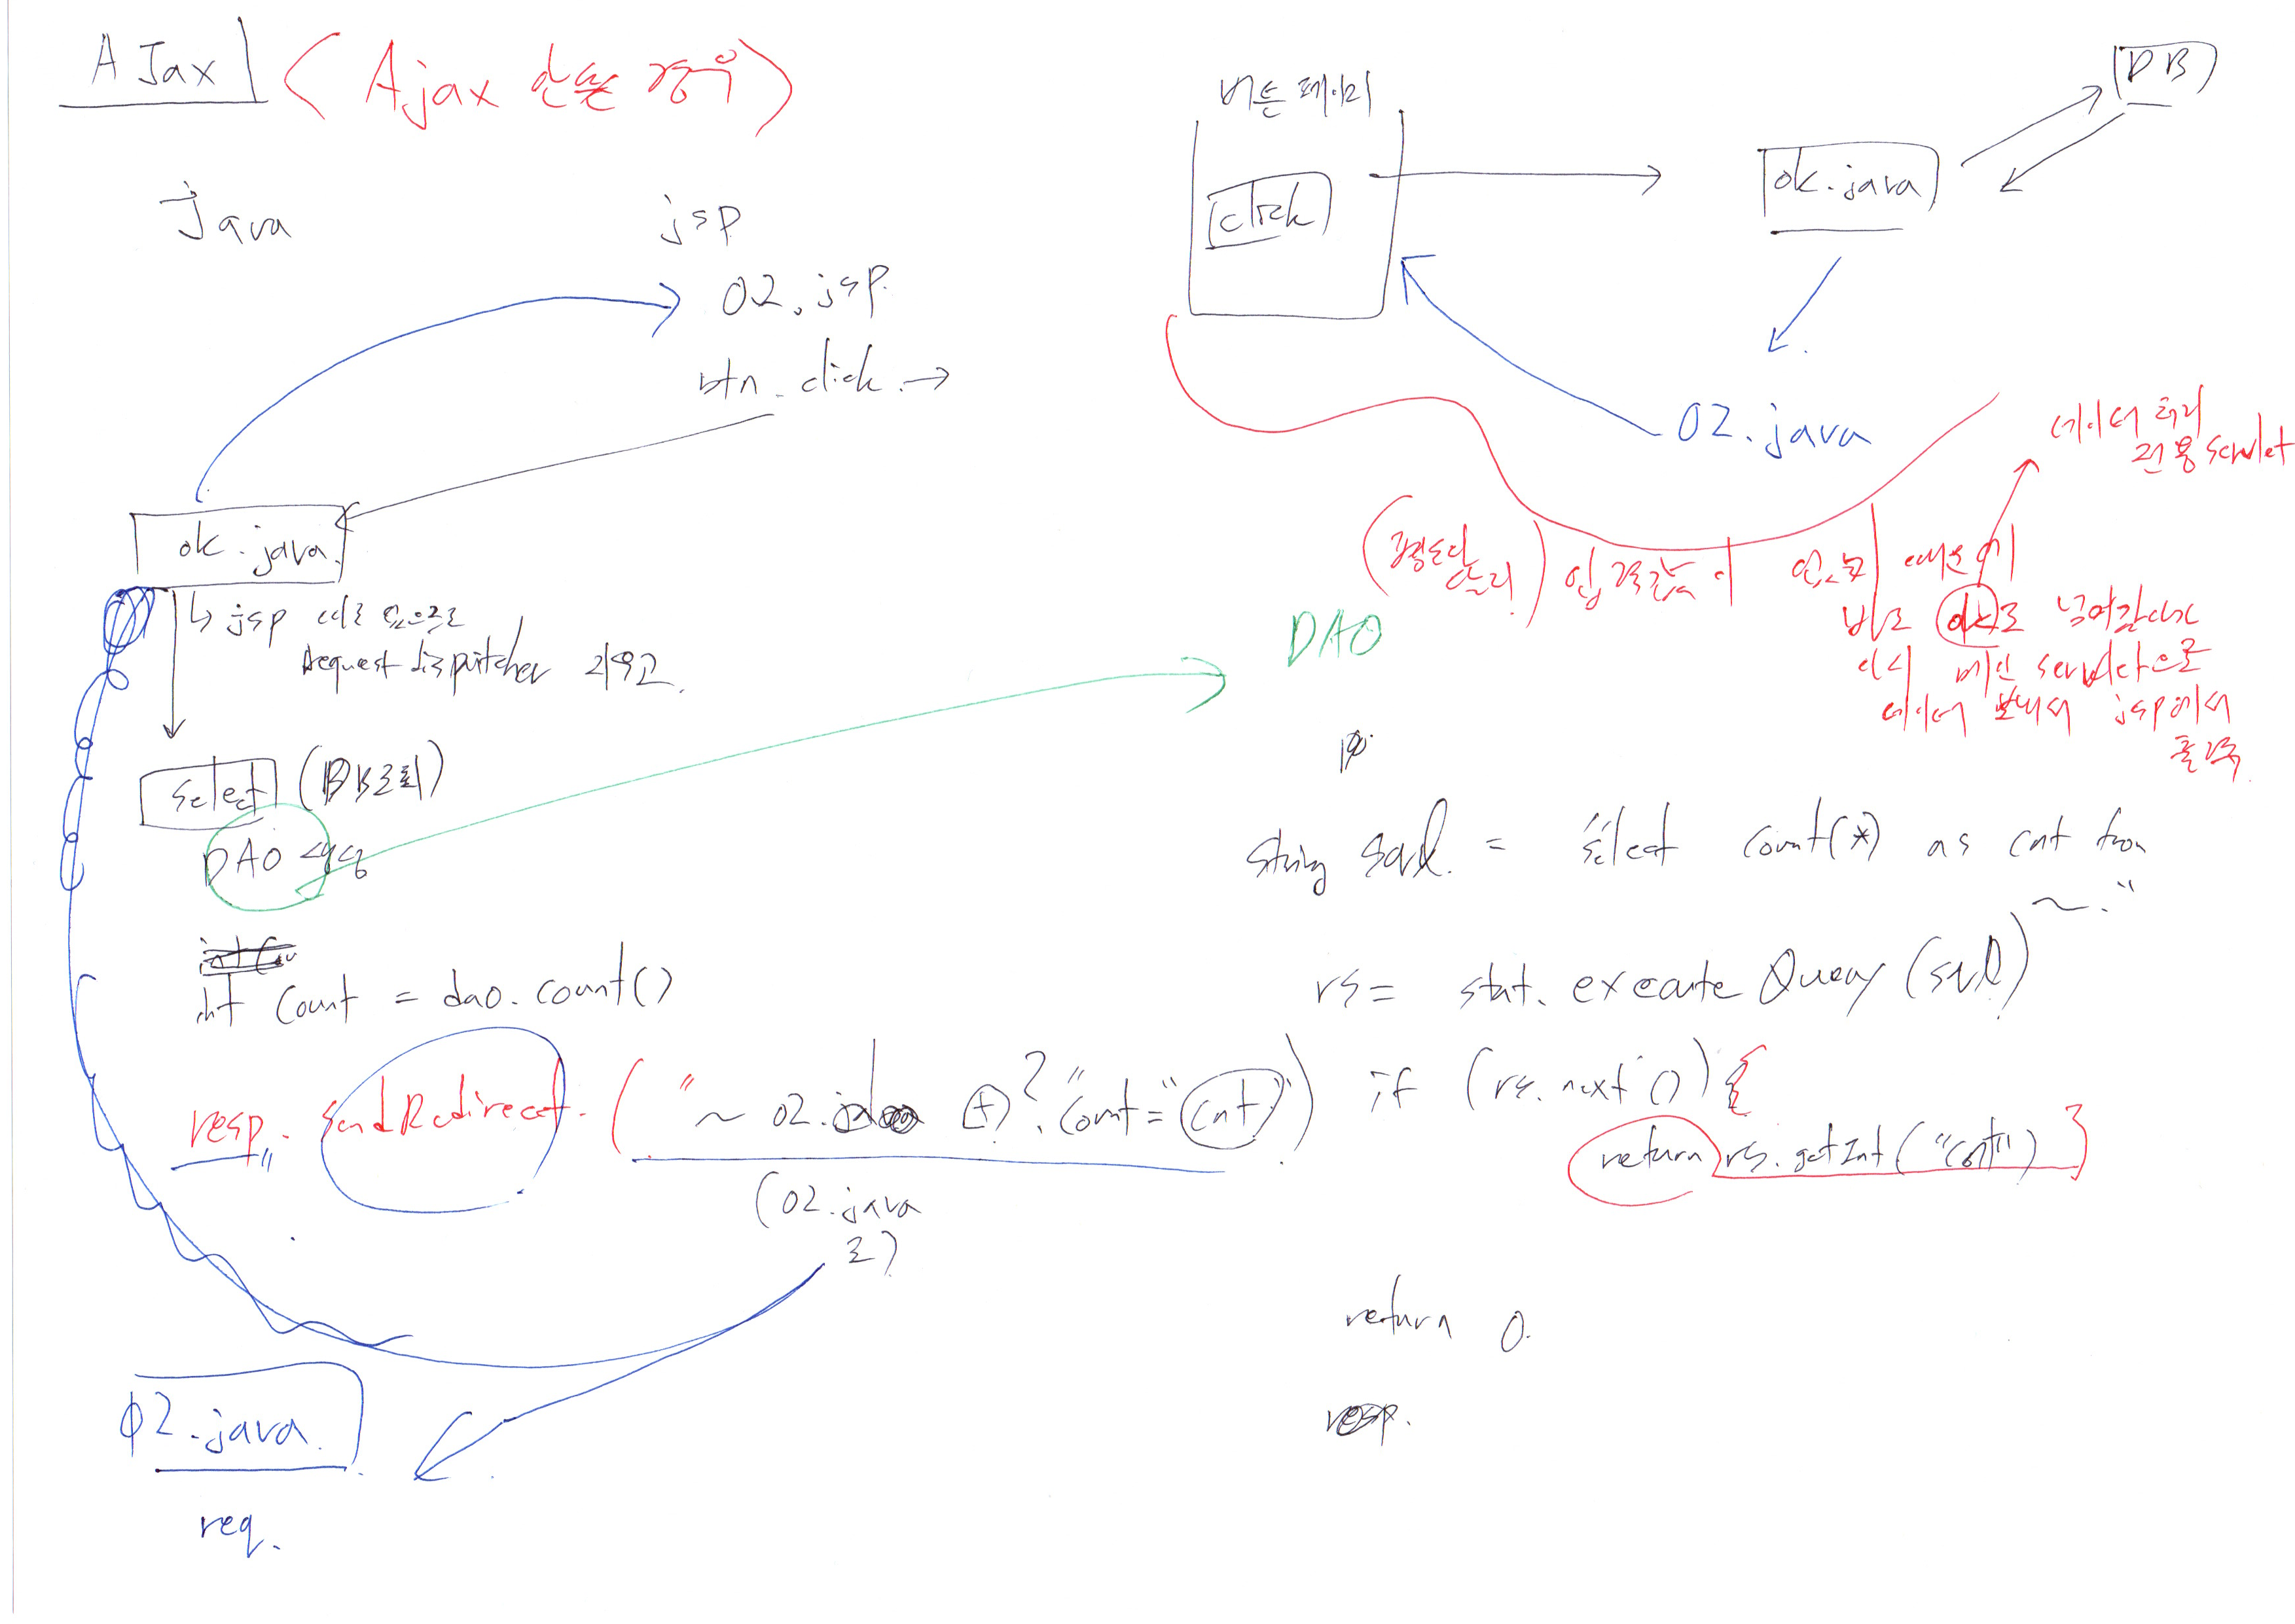 AJax
(Ajax 안쓴 경우)
java
jsp
02.jsp
btn click →
ok.java
↳ jsp 따로 있으므로
Request dispatcher 필요
select (DB조회)
DAO 생성
int count = dao.count()
resp. sendRedirect. ("~ 02. + ? count=" cnt)
(02.java
로)
02.java
req.
버튼 페이지
click
ok.java
DB
02.java
데이터 처리
전용 servlet
(평소랑
달리) 입력값이 없기 때문에
바로 ok로 넘어갔다가
다시 메인 servlet으로
데이터 보내서 jsp에서
출력
DAO
string sql = "select count(*) as cnt from
~."
rs = stat. executeQuery (sql)
if (rs.next()) {
return rs.getInt("cnt") }
return 0.
resp.